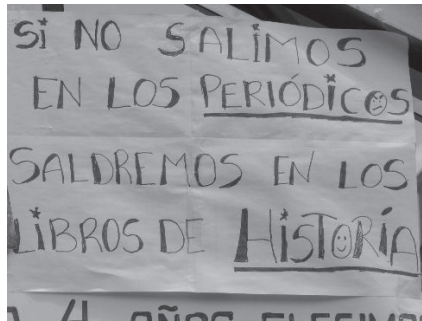 Si NO SALiMOS
EN LOS PERiÓDiCOS
SALDREMOS EN LOS
LiBROS DE HiSTORiA
4 AÑOS